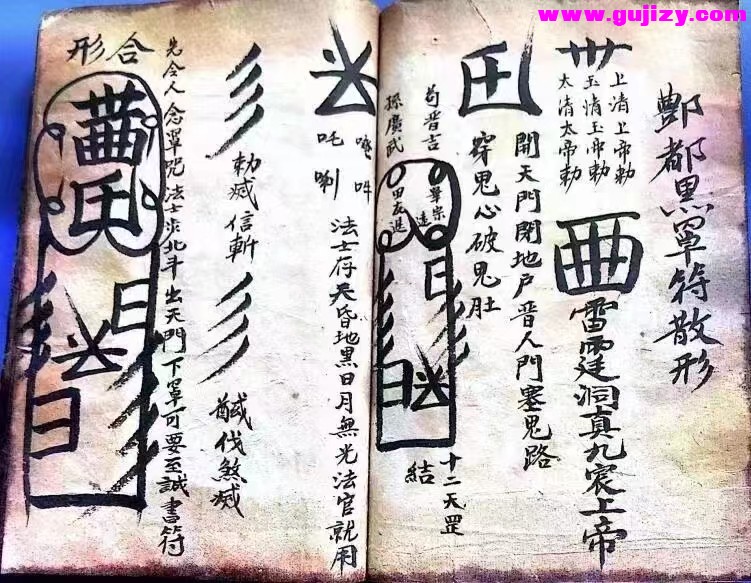 www.gujizy.com
酆都黑罩符散形
上清上帝勅
玉清玉帝勅
太清太帝勅
雷霆洞真九宸上帝
開天門閉地户晋人門塞鬼路
穿鬼心破鬼肚
孫廣武
畢宗遠
十二天罡
結
唵吽
吒唎
法士存天昏地黑日月無光法官就用
勅滅信斬
馘伐煞滅
先令人念罩咒法士求北斗出天門下罩可要至誠書符
合形